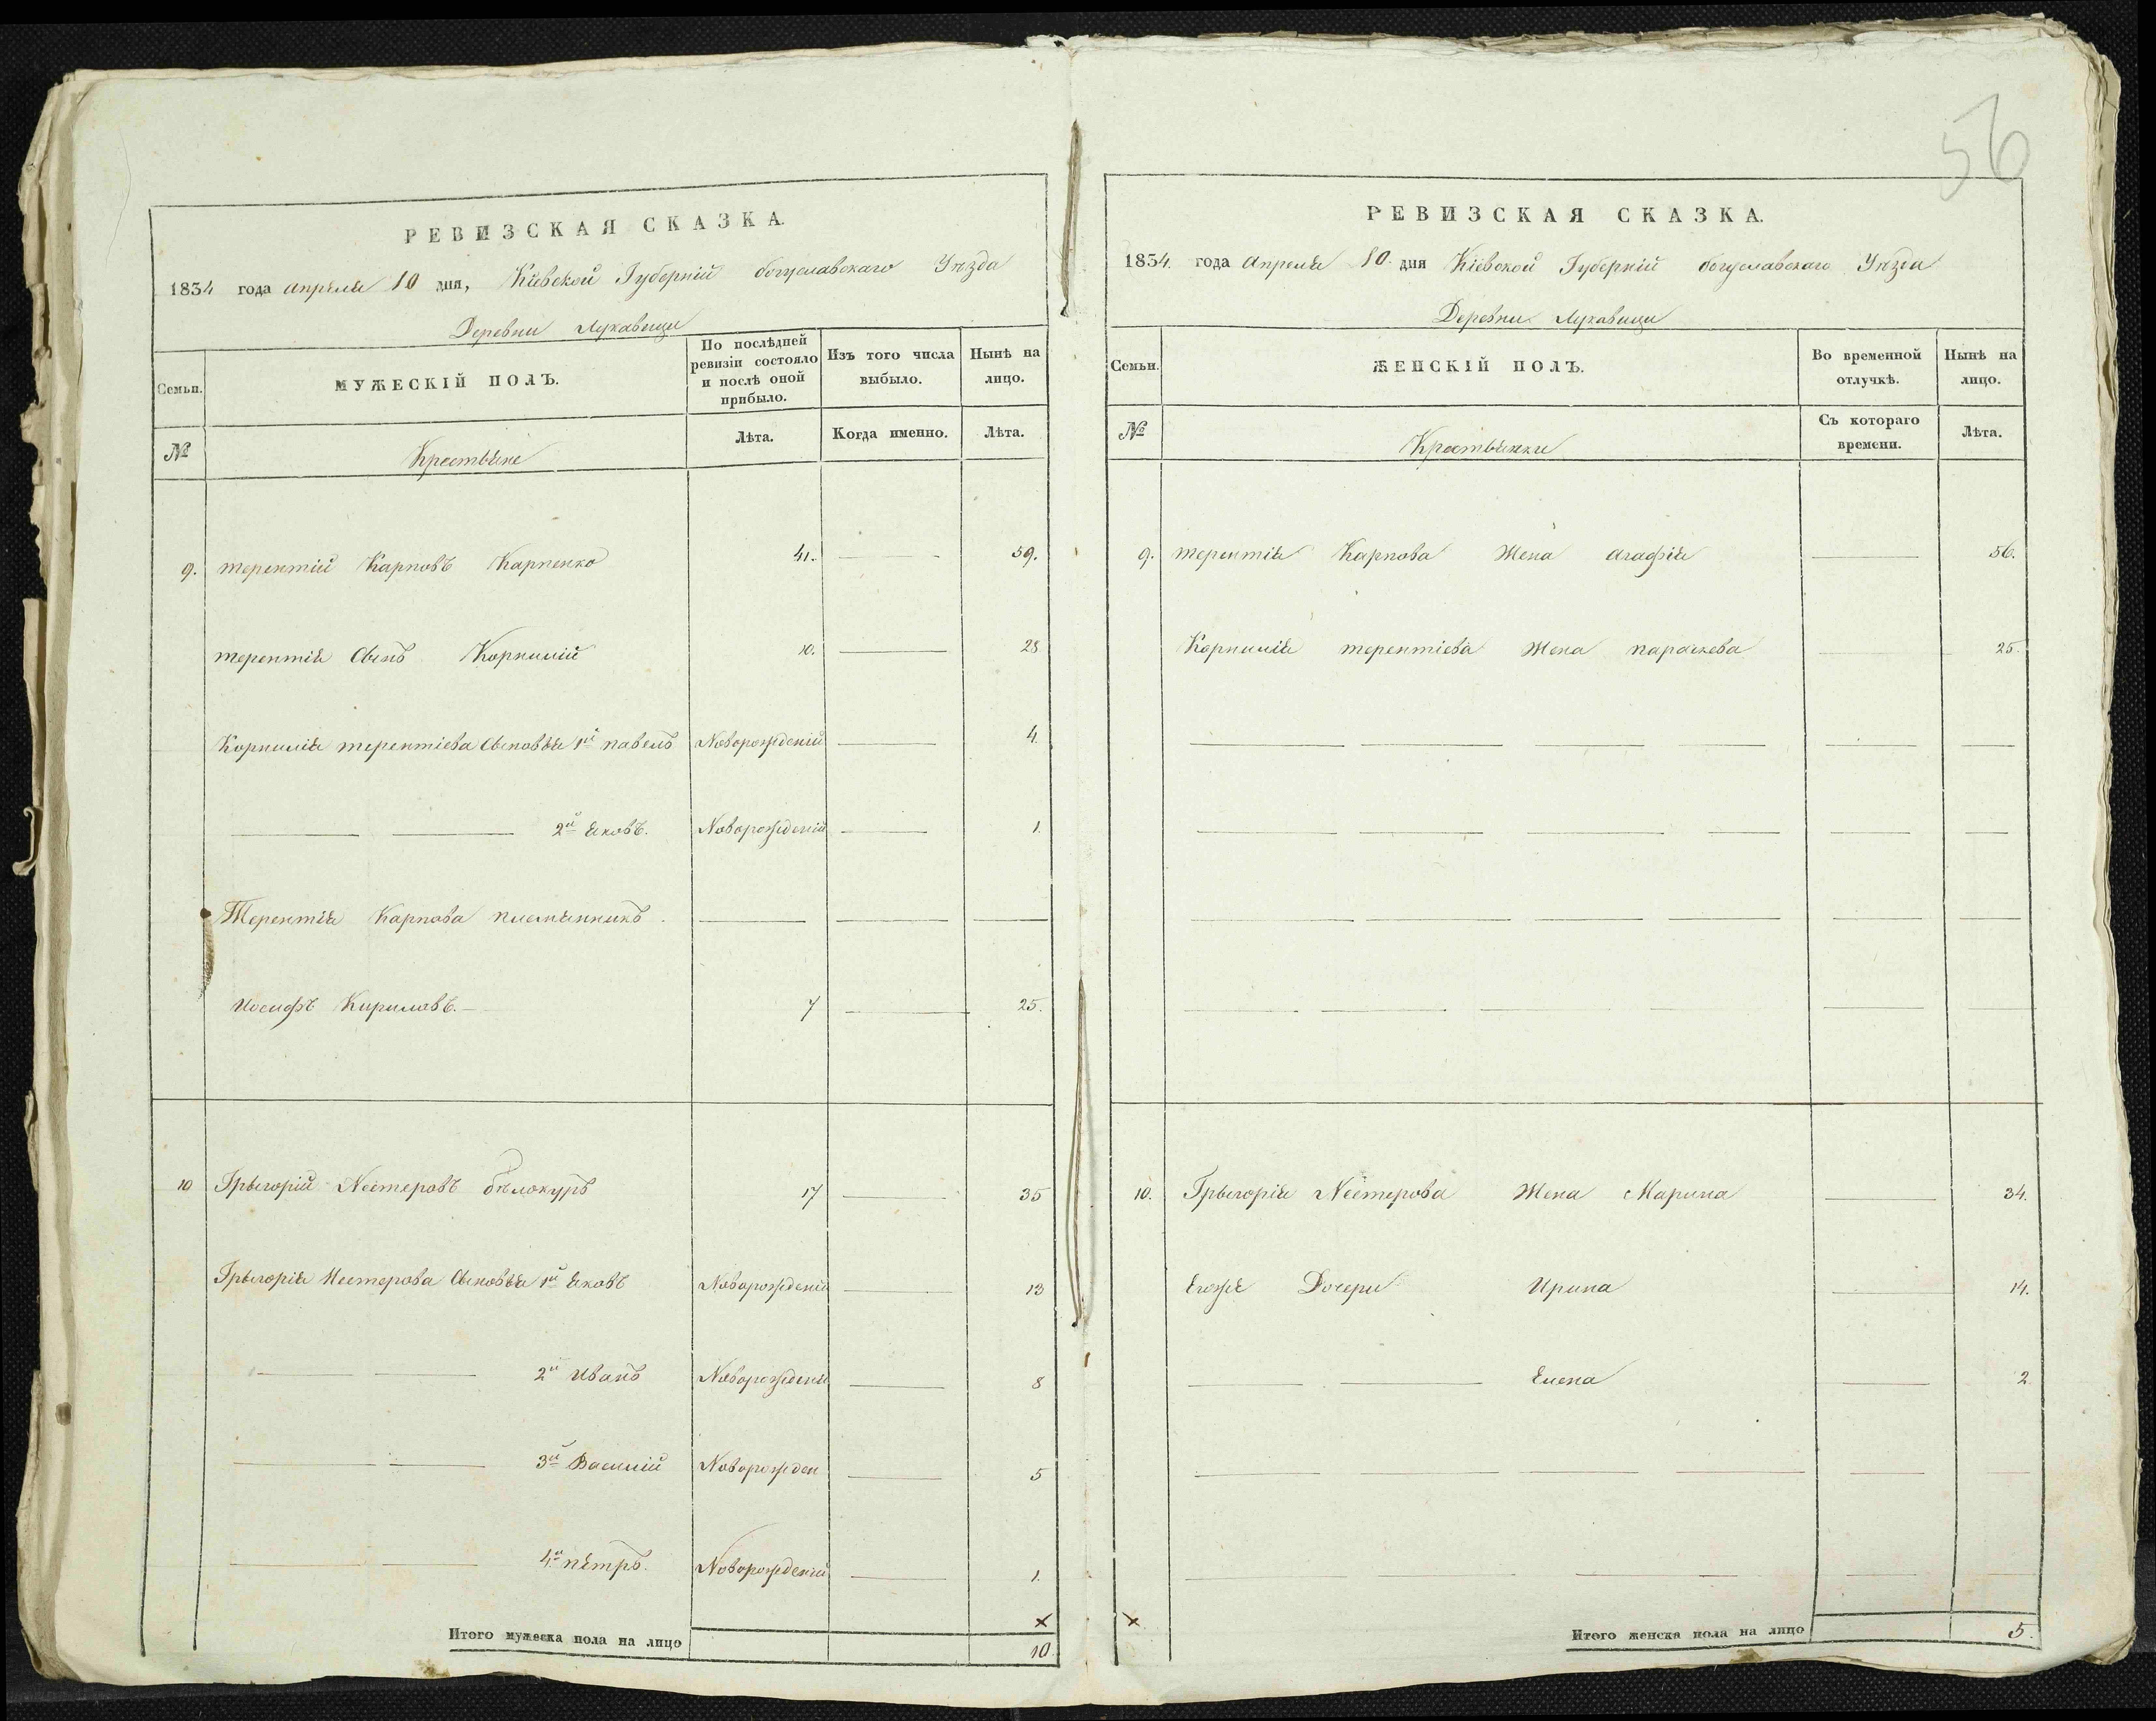 56
РЕВИЗСКАЯ СКАЗКА.
1834 года апреля 10 дня, Кіевской Губерніи богуславскаго Уѣзда
Деревни Лукавици
Семьи. МУЖЕСКІЙ ПОЛЪ. По послѣдней ревизіи состояло и послѣ оной прибыло. Изъ того числа выбыло. Нынѣ на лицо.
№ Крестьяне Лѣта. Когда именно. Лѣта.
9. терентій Карповъ Карпенко 41. — 59.
терентія Сынъ Корнилій 10. — 28
Корнилія терентіева Сыновья 1й павелъ Новорожденій — 4.
— — 2й Яковъ. Новорожденій — 1.
Терентія Карпова племянникъ — — —
Иосифъ Кириловъ. — 7 — 25.
10 Грыгорій Нестеровъ бѣлокуръ 17 — 35
Грыгорія Нестерова Сыновья 1й Яковъ Новорожденій — 13
— — 2й Иванъ Новорожденій — 8
— — 3й Василій Новорожден — 5
— — 4й пётръ. Новорожденій — 1.
Итого мужеска пола на лицо 10
РЕВИЗСКАЯ СКАЗКА.
1834. года Апреля 10. дня Кіевской Губерніи богуславскаго Уѣзда
Деревни Лукавици
Семьи. ЖЕНСКІЙ ПОЛЪ. Во временной отлучкѣ. Нынѣ на лицо.
№ Крестьянки Съ котораго времени. Лѣта.
9. терентія Карпова Жена агафія — 56.
Корнилія терентіева Жена параскева — 25.
10. Грыгорія Нестерова Жена Марина — 34.
Егоже Дочери Ирина — 14.
— — Елена — 2
Итого женска пола на лицо 5.